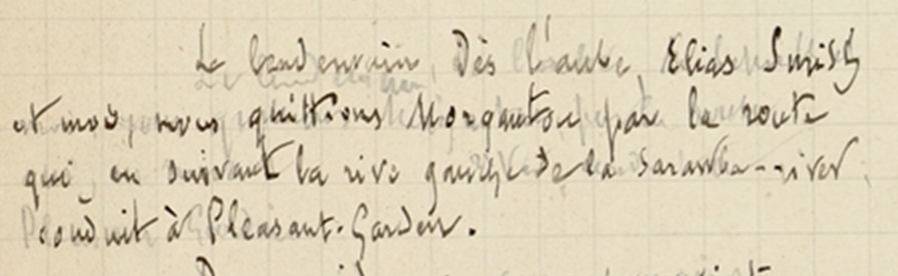 Le lendemain, Dès l'aube, Elias Smith
et moi, nous quittions Morganton par la route
qui, en suivant la rive gauche de la Sarawba-river,
conduit à Pleasant-Garden.